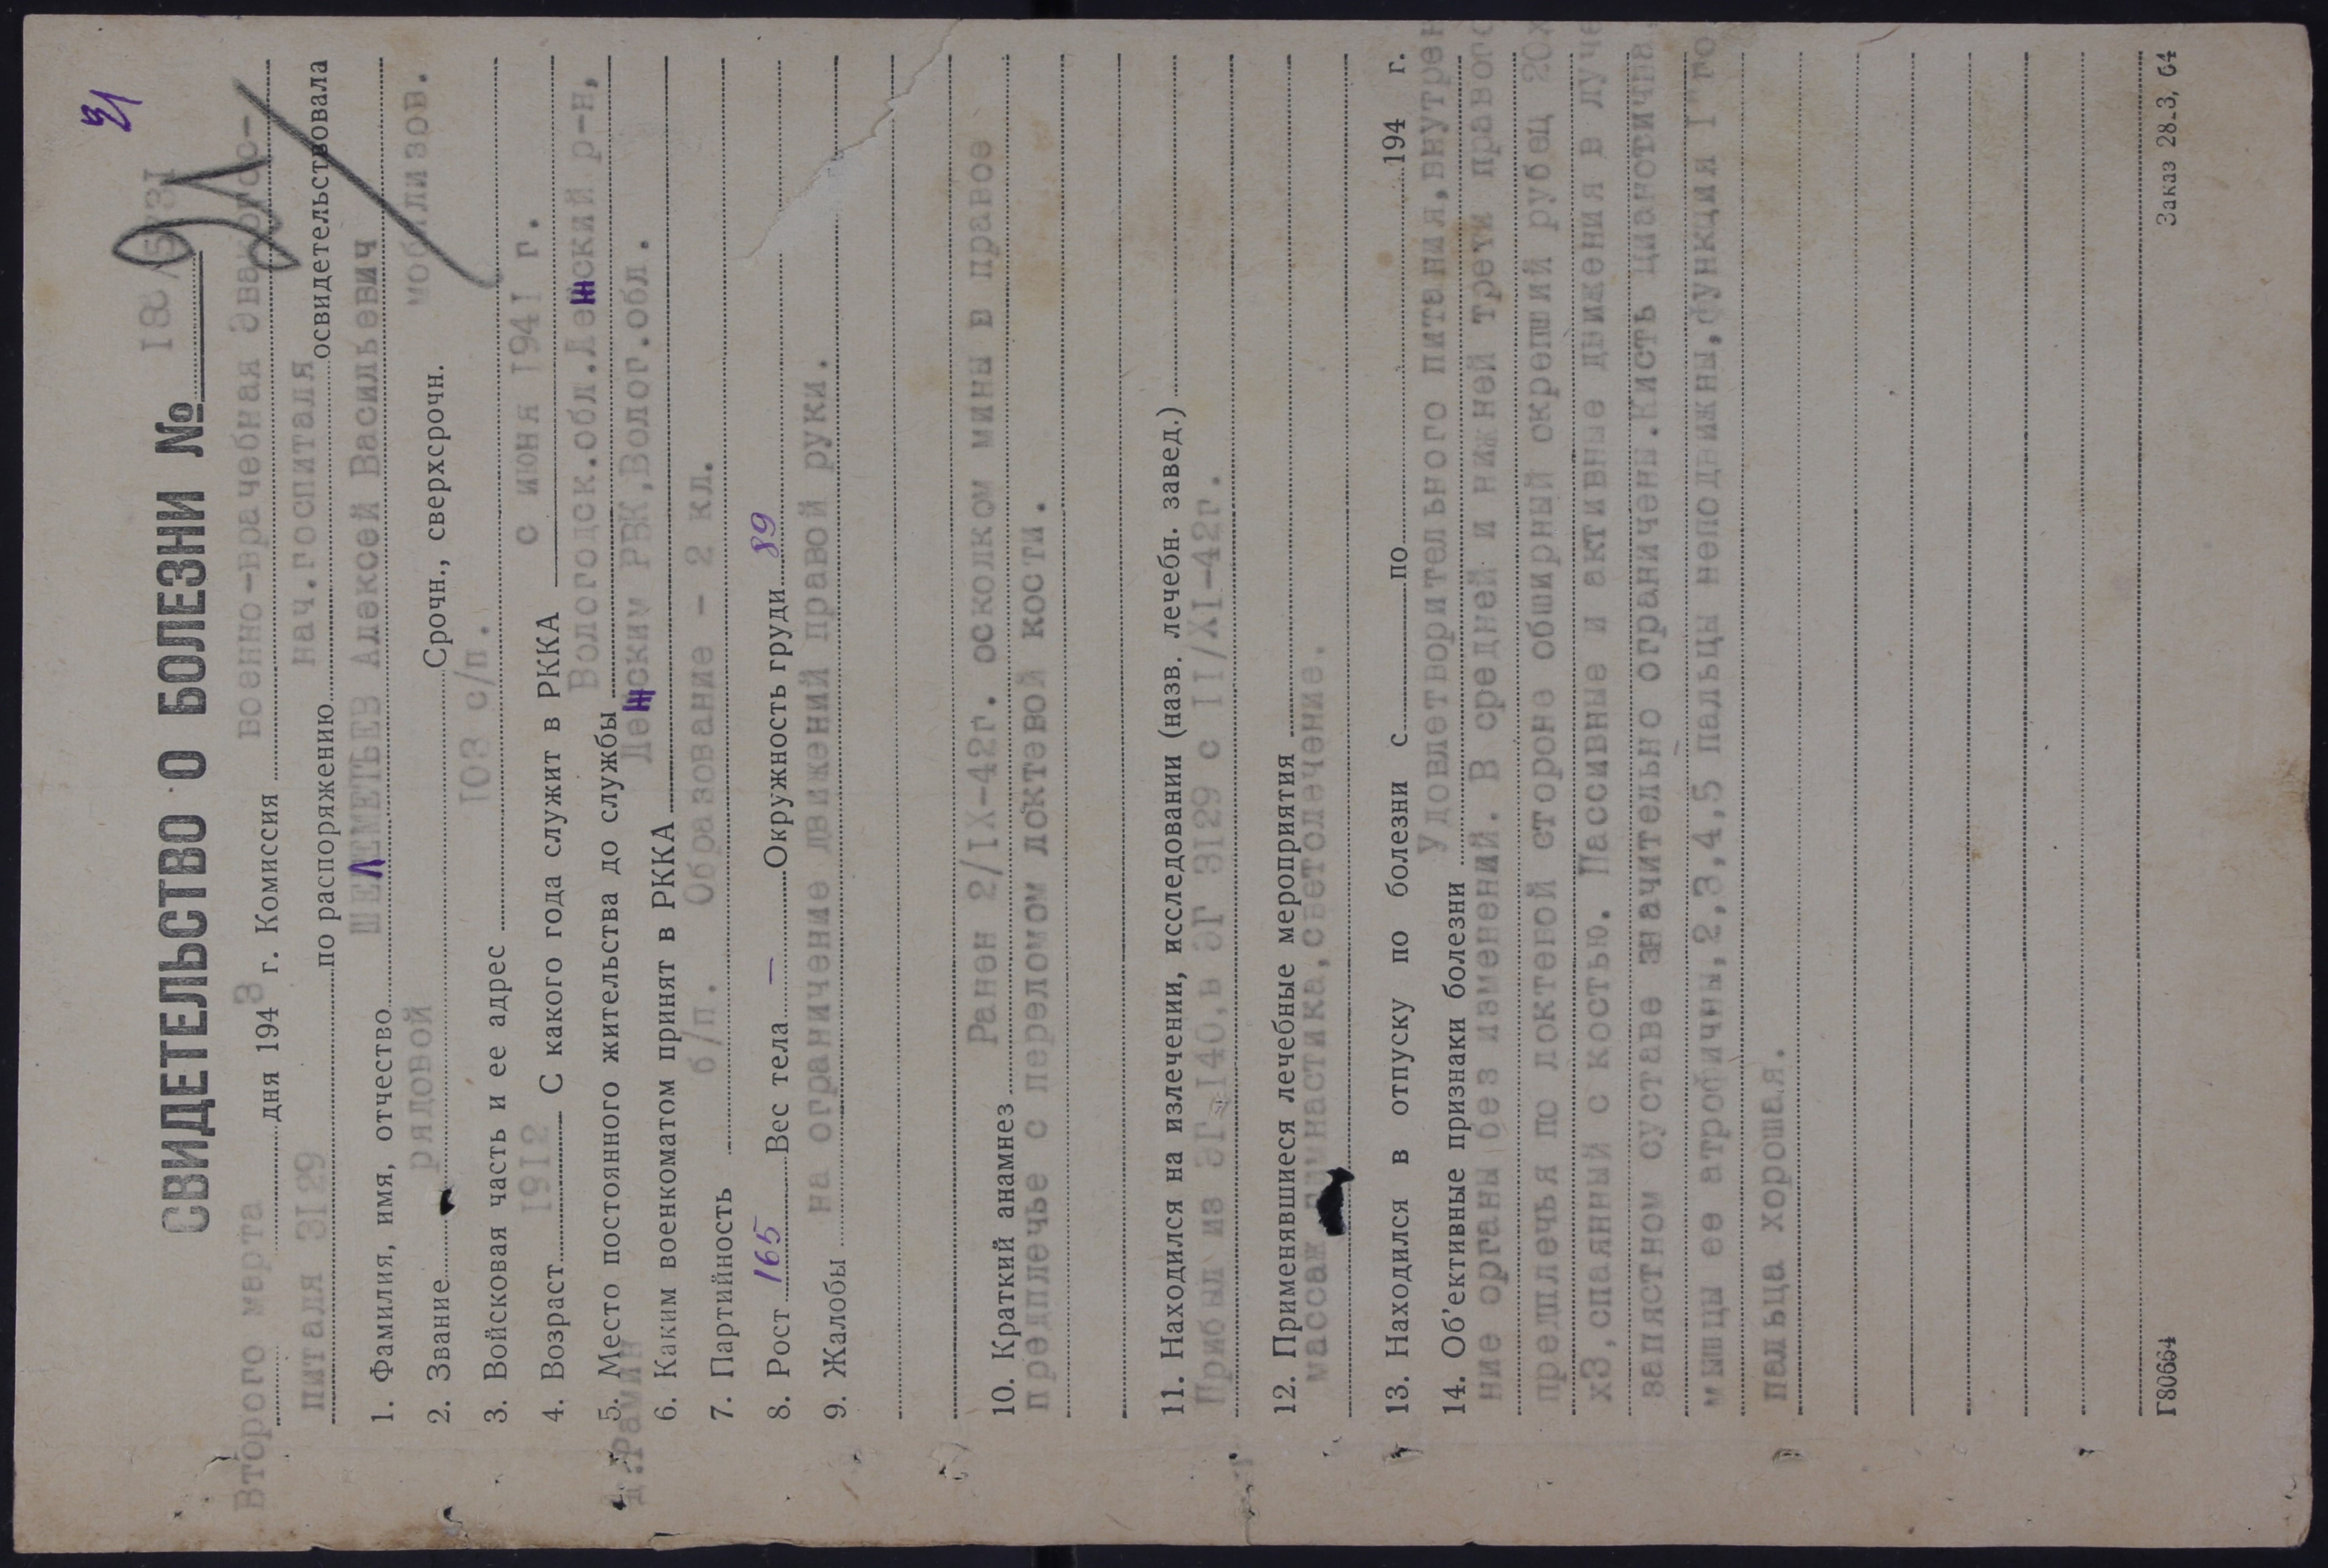 31
СВИДЕТЕЛЬСТВО О БОЛЕЗНИ №
Второго марта дня 1943 г. Комиссия военно-врачебная эвакогос-
питаля 3I29 по распоряжению нач.госпиталя освидетельствовала
1. Фамилия, имя, отчество ШЕЛЕМЕТЬЕВ Алексей Васильевич
2. Звание рядовой Срочн., сверхсрочн. мобилизов.
3. Войсковая часть и ее адрес I03 с/п.
4. Возраст I9I2 С какого года служит в РККА с июня I94I г.
5. Место постоянного жительства до службы Вологодск.обл.Ленский р-н,
д.Рамин
6. Каким военкоматом принят в РККА Ленским РВК,Волог.обл.
7. Партийность б/п. Образование - 2 кл.
8. Рост 165 Вес тела — Окружность груди 89
9. Жалобы на ограничение движений правой руки.
10. Краткий анамнез Ранен 2/IX-42г. осколком мины в правое
предплечье с переломом локтевой кости.
11. Находился на излечении, исследовании (назв. лечебн. завед.)
Прибыл из ЭГ-I40,в ЭГ 3I29 с II/XI-42г.
12. Применявшиеся лечебные мероприятия
массаж гимнастика,светолечение.
13. Находился в отпуску по болезни с по 194 г.
14. Об'ективные признаки болезни Удовлетворительного питания,внутрен
ние органы без изменений. В средней и нижней трети правого
предплечья по локтевой стороне обширный окрепший рубец 20х
х3,спаянный с костью. Пассивные и активные движения в луче
запястном суставе значительно ограничены.Кисть цианотична,
мышцы ее атрофичны,2,3,4,5 пальцы неподвижны,функция I-го
пальца хорошая.
Г80664 Заказ 28.3, 64